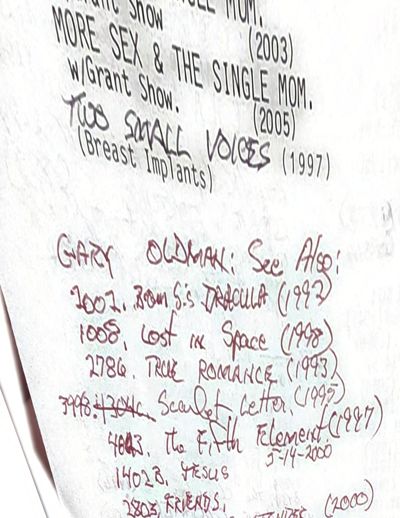 SINGLE MOM.
w/Grant Show
(2003)
MORE SEX & THE SINGLE MOM.
w/Grant Show.
(2005)
TWO SMALL VOICES (1997)
(Breast Implants)
GARY OLDMAN: See Also:
2002. BRAM S.'s DRACULA (1992)
1008. Lost in Space (1998)
2786. TRUE ROMANCE (1993)
3998. Scarlet Letter. (1995)
The Fifth Element. (1997)
5-14-2000
1402B. JESUS
2803. FRIENDS.
(2000)